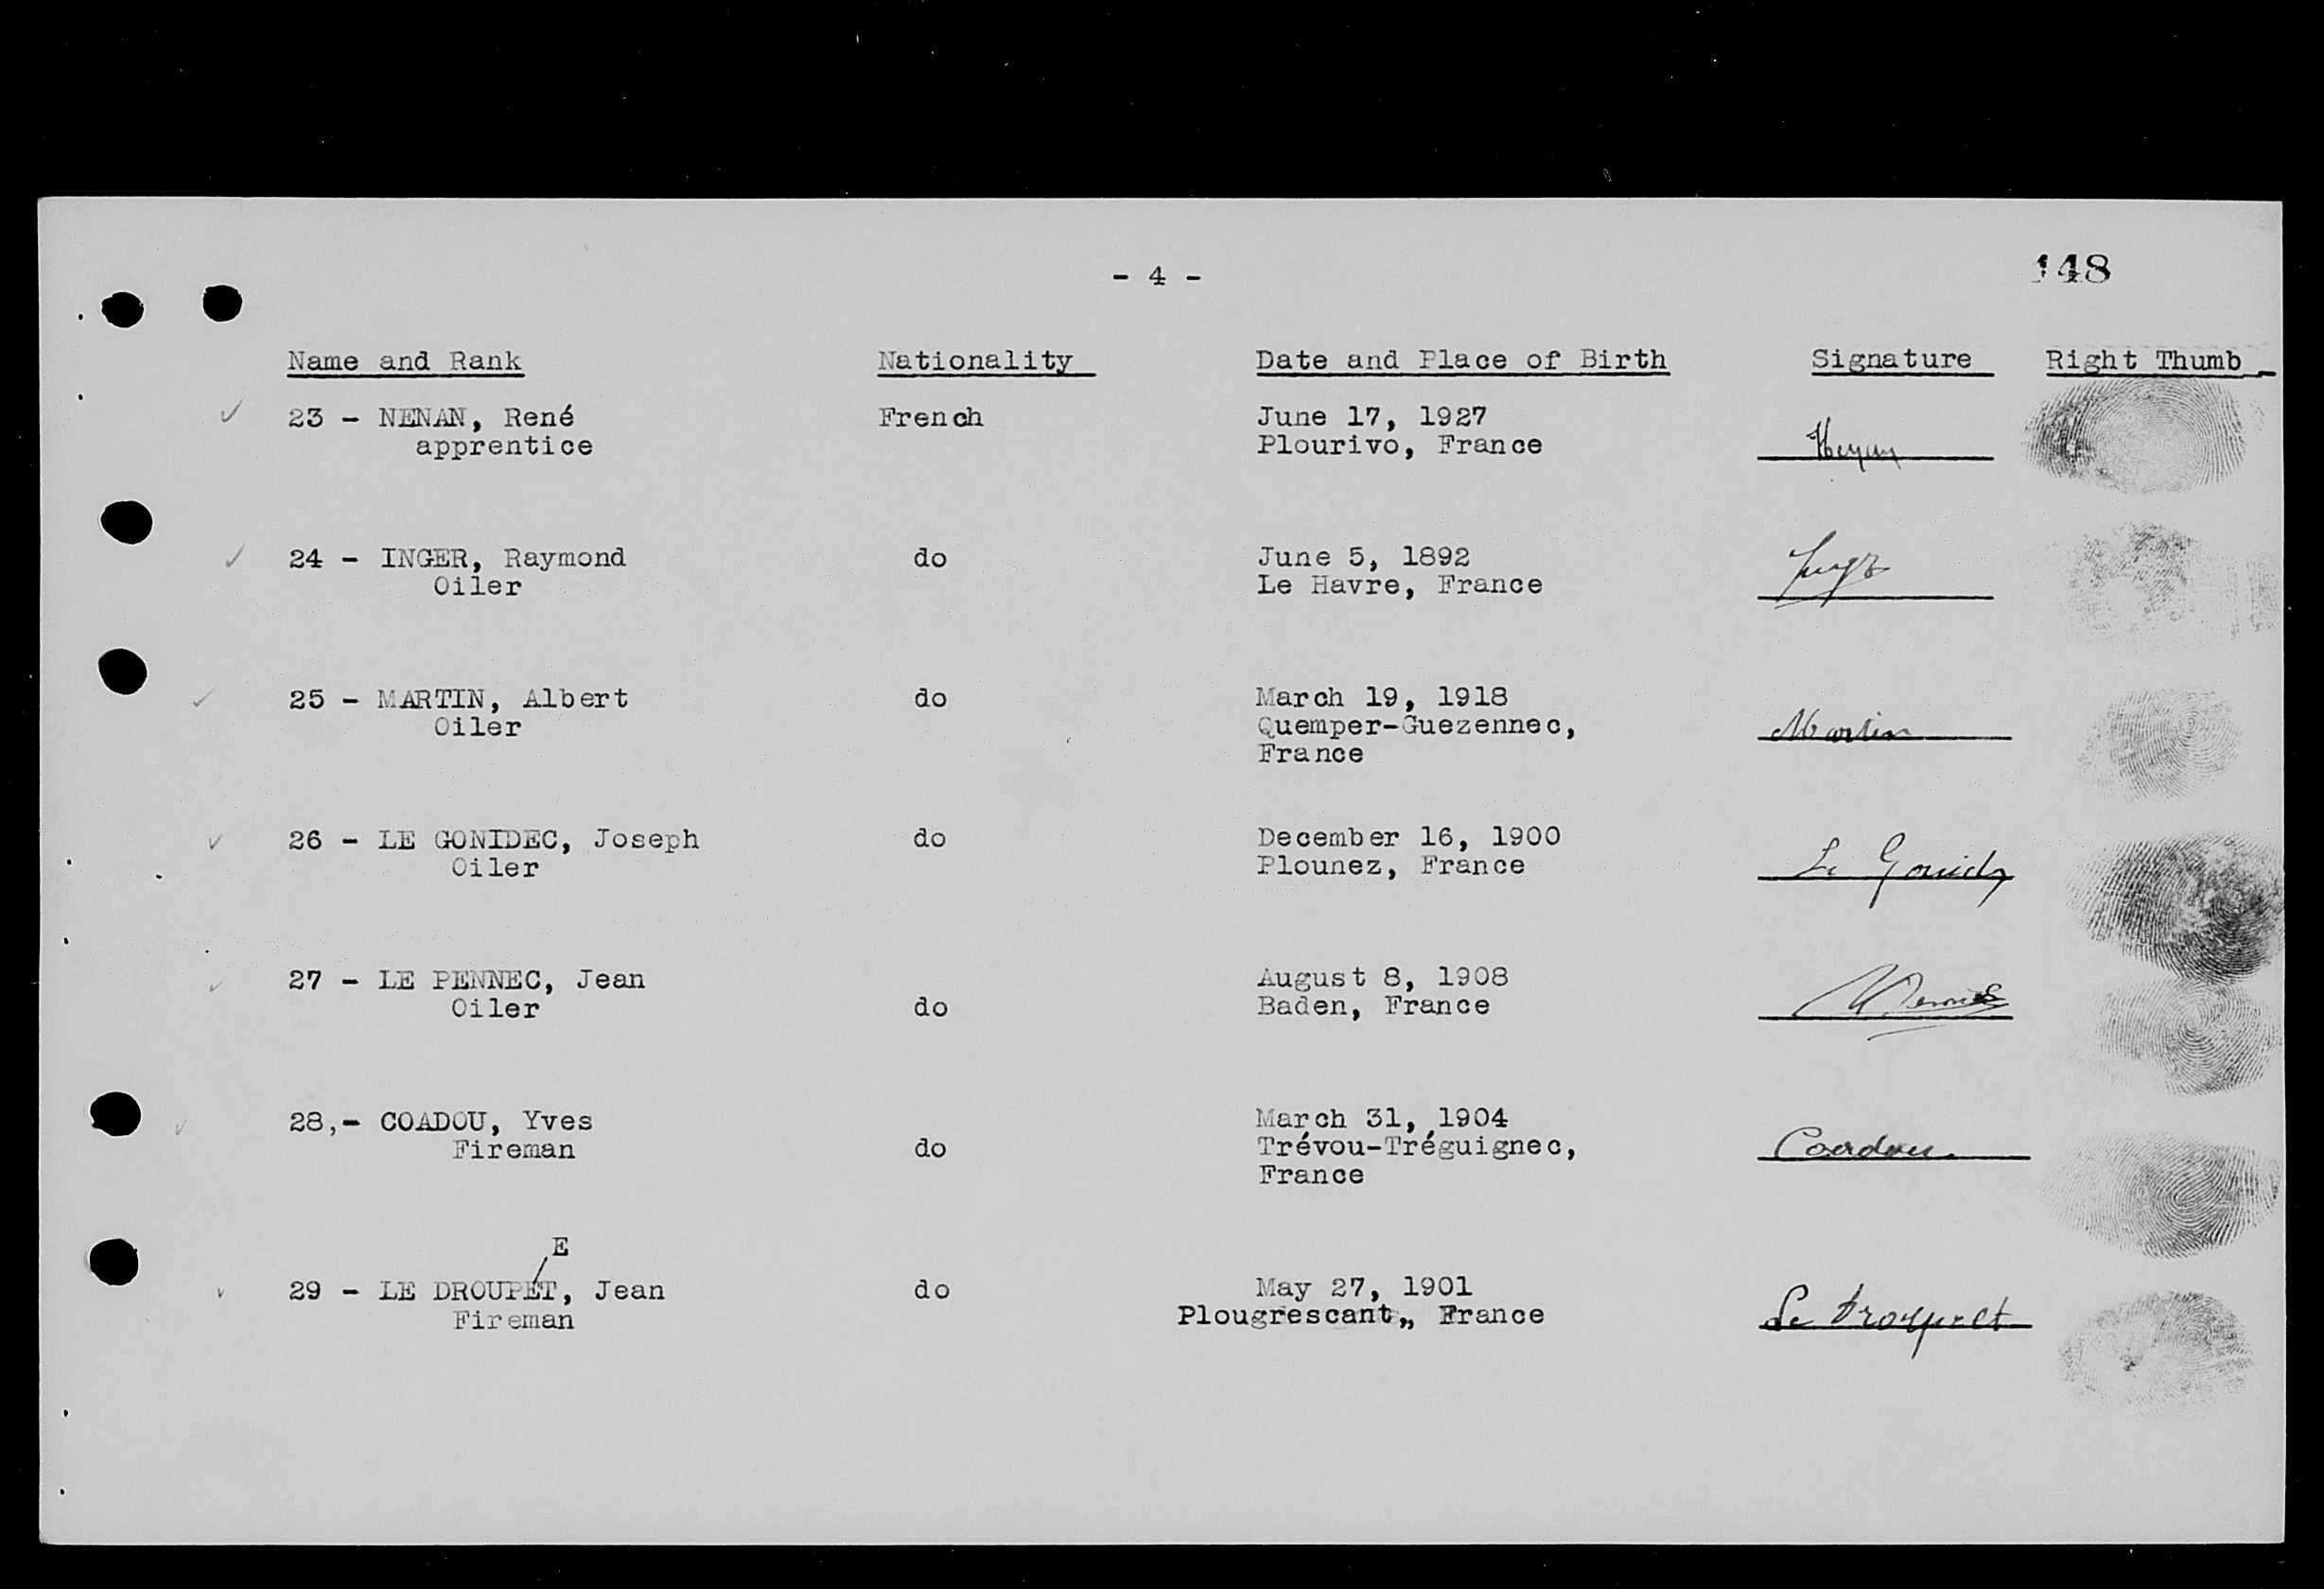 - 4 -
148
Name and Rank Nationality Date and Place of Birth Signature Right Thumb
23 - NENAN, René French June 17, 1927
apprentice Plourivo, France
24 - INGER, Raymond do June 5, 1892
Oiler Le Havre, France
25 - MARTIN, Albert do March 19, 1918
Oiler Quemper-Guezennec, Martin
France
26 - LE GONIDEC, Joseph do December 16, 1900
Oiler Plounez, France Le Gonidec
27 - LE PENNEC, Jean August 8, 1908
Oiler do Baden, France
28,- COADOU, Yves March 31, 1904
Fireman do Trévou-Tréguignec, Coadou.
France
E
29 - LE DROUPET, Jean do May 27, 1901
Fireman Plougrescant,, France Le Droupeet